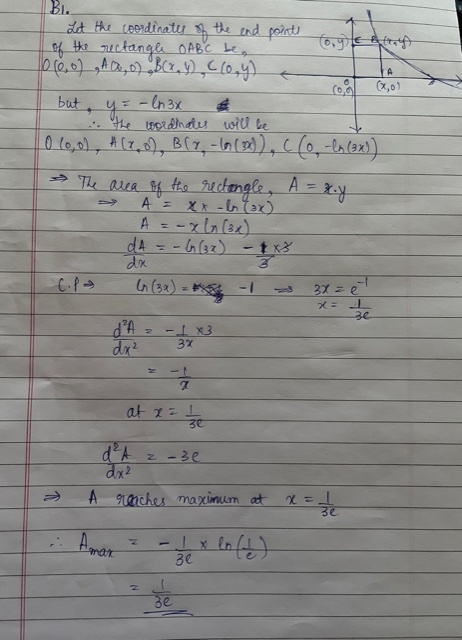 B1.
Let the coordinates of the end points
of the rectangle OABC be,
O(0,0), A(x,0), B(x,y), C(0,y)
(0,y) C B (x,y)
0 A
(0,0) (x,0)
but, y = -ln3x
∴ the coordinates will be
O(0,0), A(x,0), B(x, -ln(3x)), C(0, -ln(3x))
⇒ The area of the rectangle, A = x.y
⇒ A = x x -ln(3x)
A = -x ln(3x)
dA/dx = -ln(3x) - 1/3 x 3
C.P ⇒ ln(3x) = -1 ⇒ 3x = e^-1
x = 1/3e
d²A/dx² = -1/3x x 3
= -1/x
at x = 1/3e
d²A/dx² = -3e
⇒ A reaches maximum at x = 1/3e
∴ Amax = -1/3e x ln(1/e)
= 1/3e